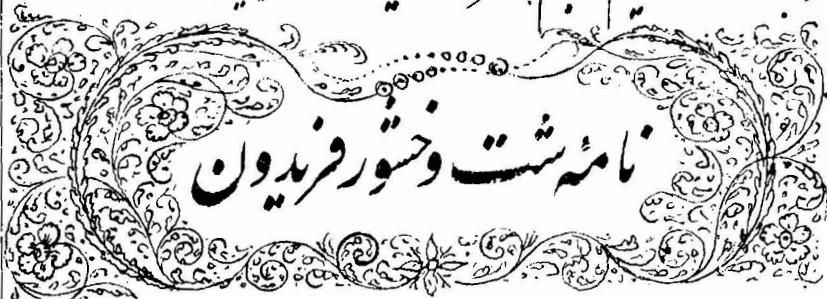 نامهٔ شت وخشور فریدون